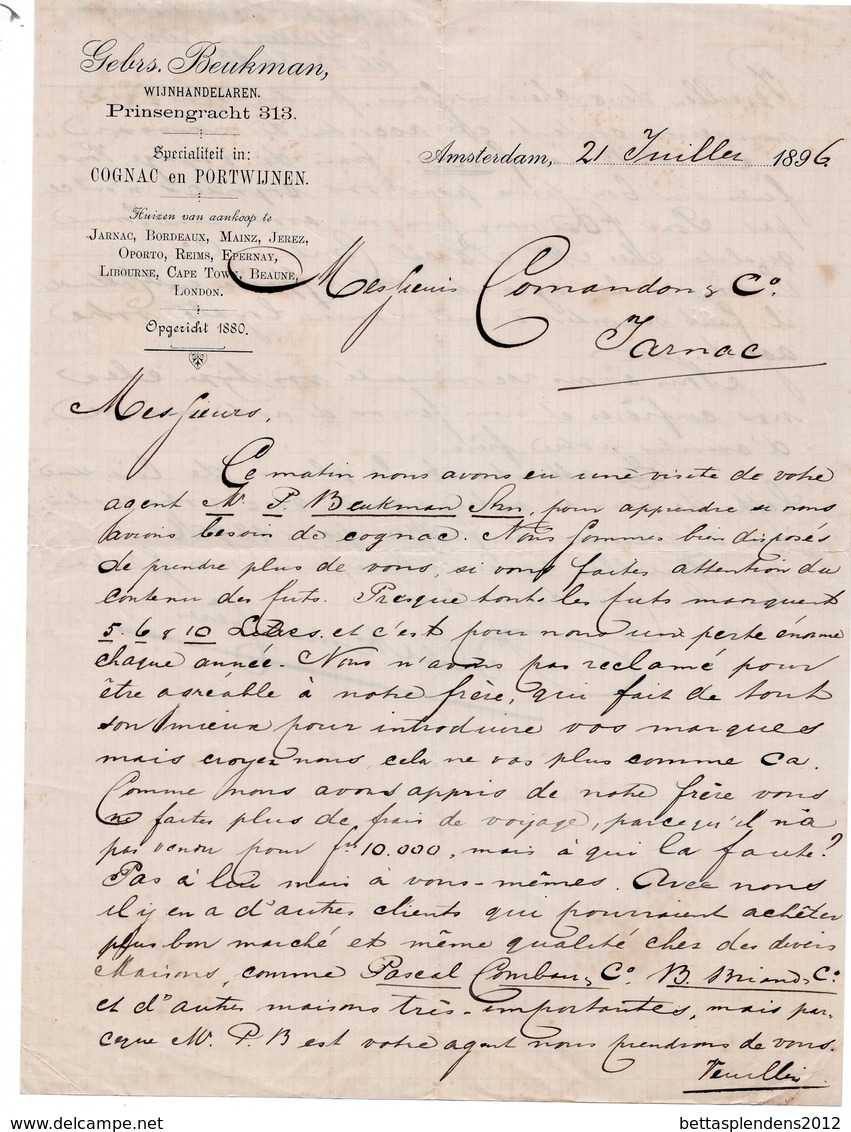 Gebrs. Beukman,
WIJNHANDELAREN.
Prinsengracht 313.
Specialiteit in:
COGNAC en PORTWIJNEN.
Huizen van aankoop te
JARNAC, BORDEAUX, MAINZ, JEREZ,
OPORTO, REIMS, EPERNAY,
LIBOURNE, CAPE TOWN, BEAUNE,
LONDON.
Opgericht 1880.
Amsterdam, 21 Juillet 1896
Messieurs Comandon & Co.
Jarnac
Messieurs,
Ce matin nous avons eu une visite de votre
agent Mr. P. Beukman Shn, pour apprendre si nous
avions besoin de cognac. Nous sommes bien disposés
de prendre plus de vous, si vous faites attention du
contenu des futs. Presque touts les futs manquent
5. 6 & 10 Litres. et c'est pour nous une perte énorme
chaque année. Nous n'avons pas reclamé pour
être agréable à notre frère, qui fait de tout
son mieux pour introduire vos marques
mais croyez nous, cela ne vas plus comme ca.
Comme nous avons appris de notre frère vous
ne faites plus de frais de voijage, parcequ'il n'a
pas vendu pour frs 10.000, mais à qui la faute?
Pas à lui mais à vous-mêmes. Avec nous
il y en a d'autres clients qui pourraient achêter
plus bon marché et même qualité chez des divers
Maisons, comme Pascal Combau & Co. B. Briand & Co.
et d'autres maisons très-importantes, mais par-
ceque Mr. P. B est votre agent nous prendrons de vous.
Veuillez
Delcampe.net
bettasplendens2012